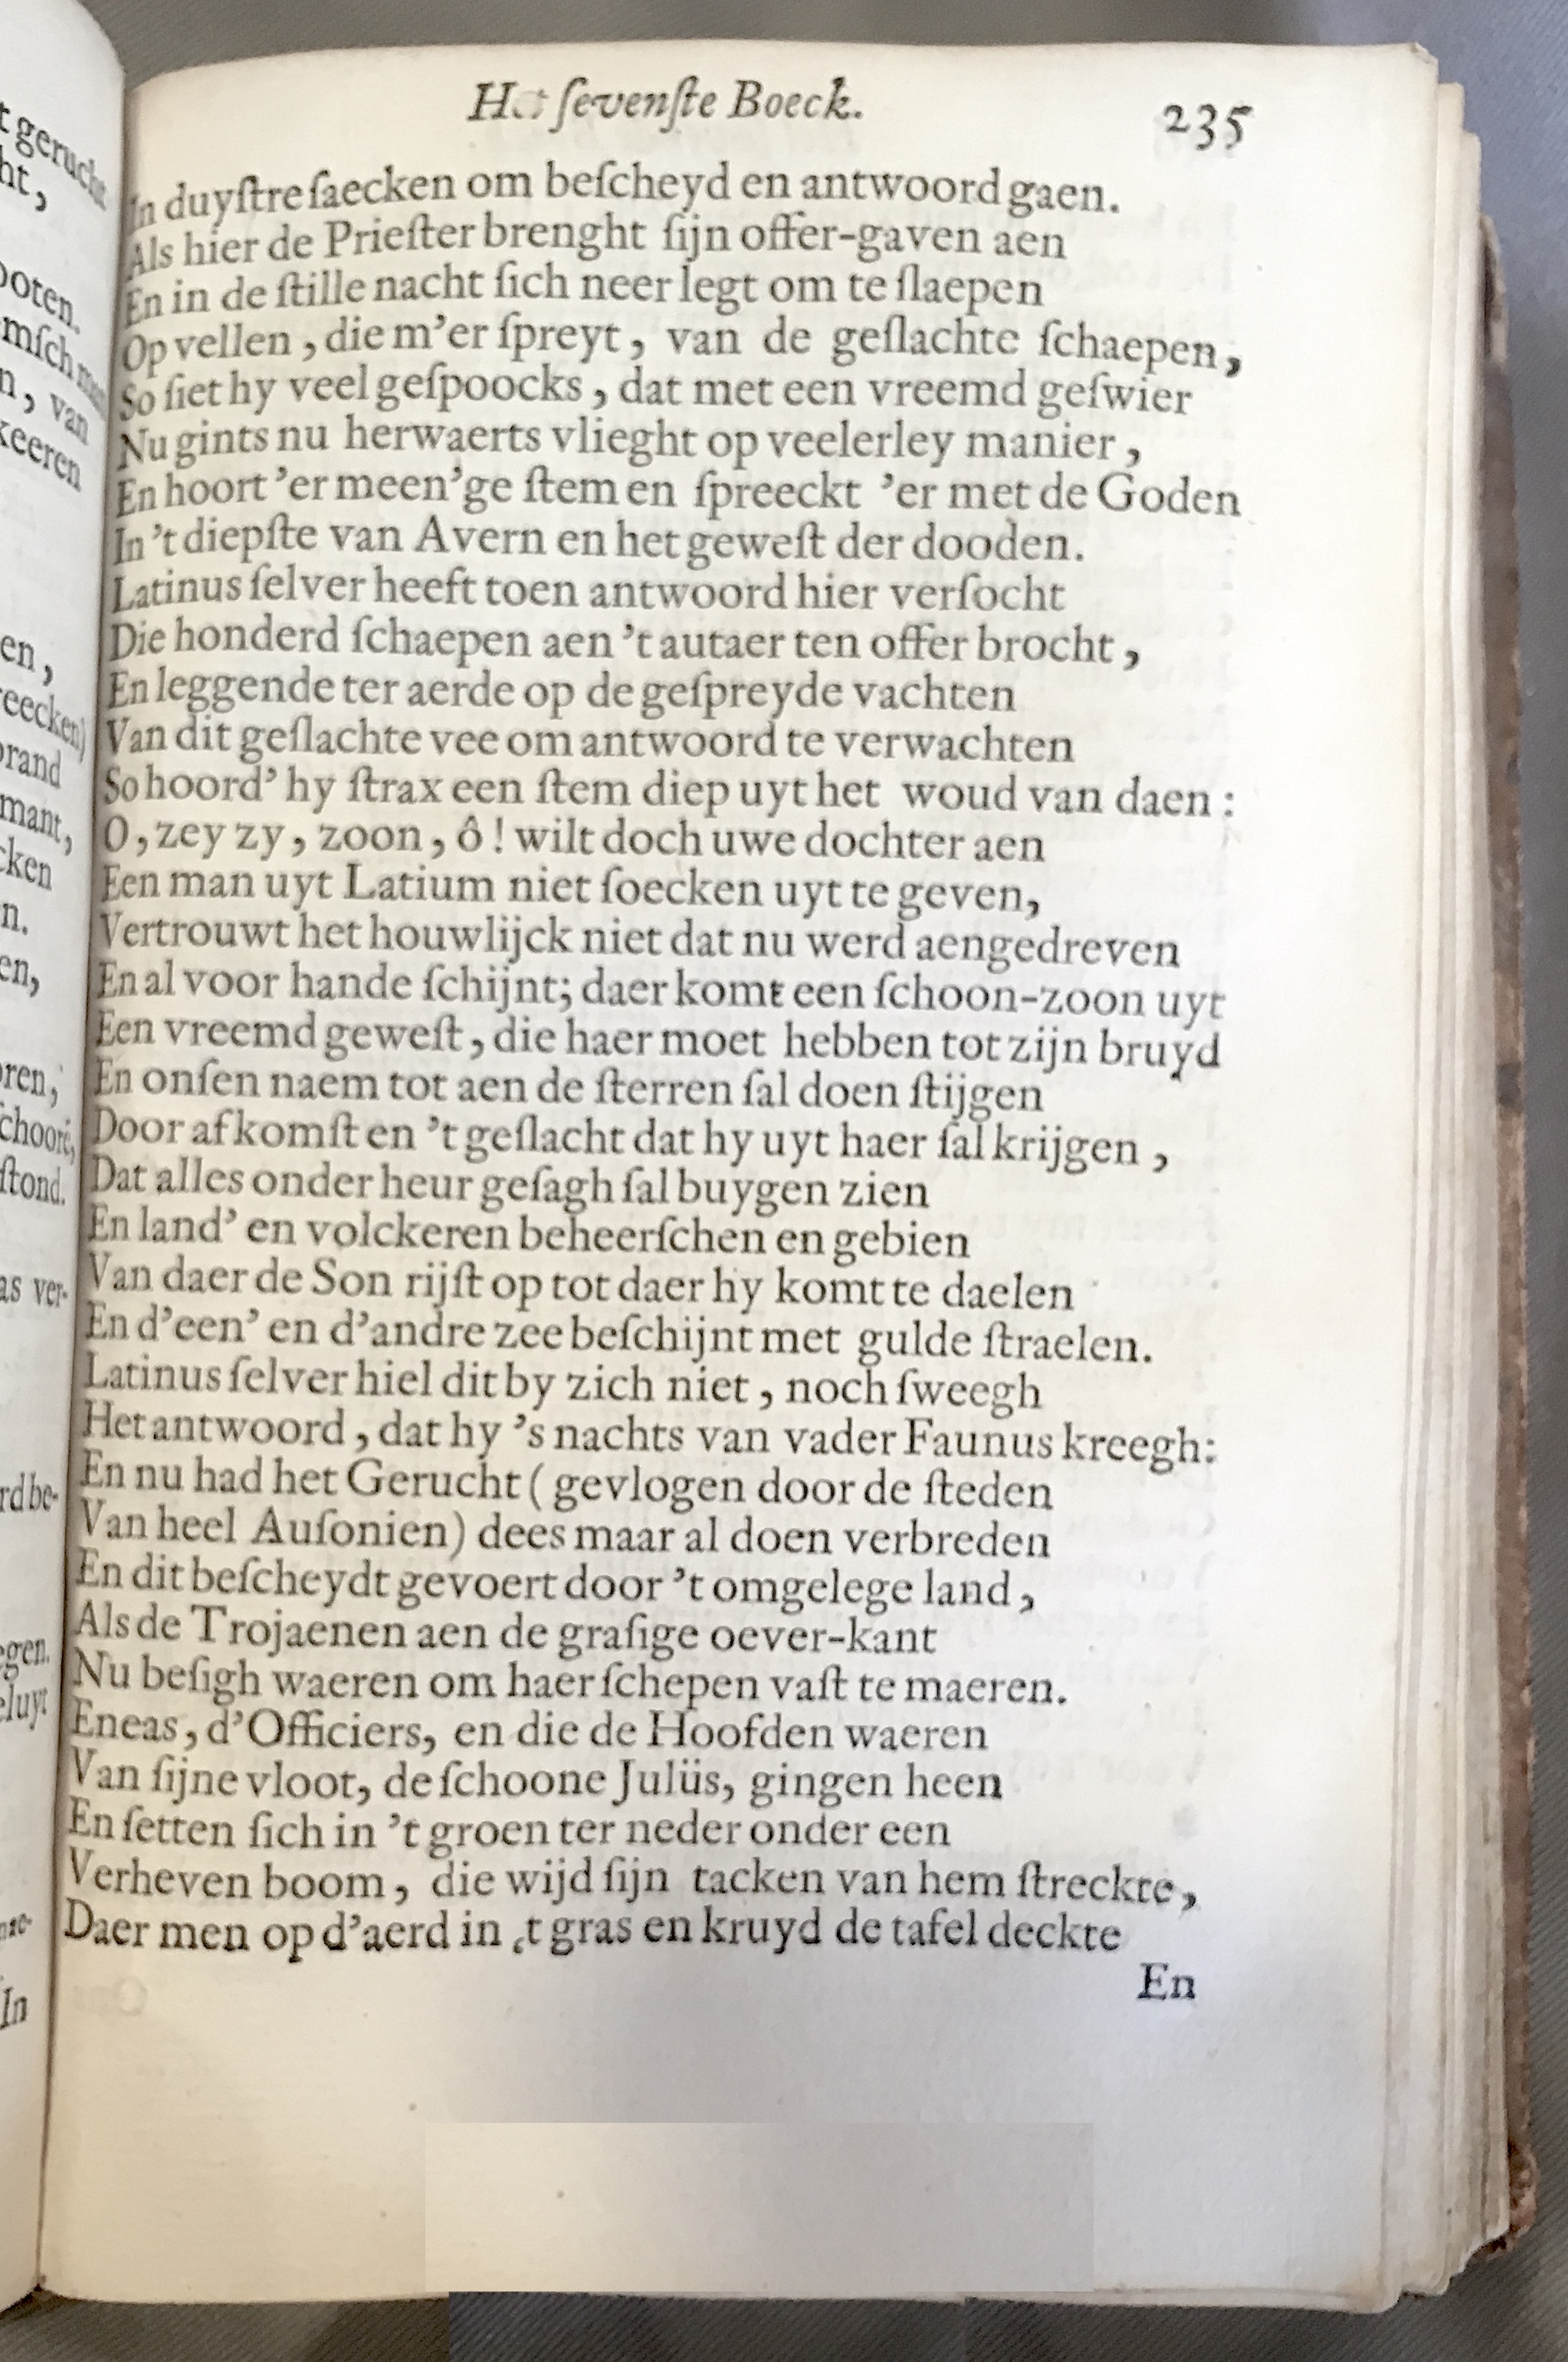 t gerucht
ht,
ooten.
n, van
keeren
en,
reecken)
brand
mant,
cken
n.
en,
oren,
ſtond.
as ver-
rd be-
egen.
eluyt
In
Het ſevenſte Boeck.
235
In duyſtre ſaecken om beſcheyd en antwoord gaen.
Als hier de Prieſter brenght ſijn offer-gaven aen
En in de ſtille nacht ſich neer legt om te ſlaepen
Op vellen, die m'er ſpreyt, van de geſlachte ſchaepen,
So ſiet hy veel geſpoocks, dat met een vreemd geſwier
Nu gints nu herwaerts vlieght op veelerley manier,
En hoort 'er meen'ge ſtem en ſpreeckt 'er met de Goden
In 't diepſte van Avern en het geweſt der dooden.
Latinus ſelver heeft toen antwoord hier verſocht
Die honderd ſchaepen aen 't autaer ten offer brocht,
En leggende ter aerde op de geſpreyde vachten
Van dit geſlachte vee om antwoord te verwachten
So hoord' hy ſtrax een ſtem diep uyt het woud van daen:
O, zey zy, zoon, ô! wilt doch uwe dochter aen
Een man uyt Latium niet ſoecken uyt te geven,
Vertrouwt het houwlijck niet dat nu werd aengedreven
En al voor hande ſchijnt; daer komt een ſchoon-zoon uyt
Een vreemd geweſt, die haer moet hebben tot zijn bruyd
En onſen naem tot aen de ſterren ſal doen ſtijgen
Door afkomſt en 't geſlacht dat hy uyt haer ſal krijgen,
Dat alles onder heur geſagh ſal buygen zien
En land' en volckeren beheerſchen en gebien
Van daer de Son rijſt op tot daer hy komt te daelen
En d'een' en d'andre zee beſchijnt met gulde ſtraelen.
Latinus ſelver hiel dit by zich niet, noch ſweegh
Het antwoord, dat hy 's nachts van vader Faunus kreegh:
En nu had het Gerucht (gevlogen door de ſteden
Van heel Auſonien) dees maar al doen verbreden
En dit beſcheydt gevoert door 't omgelege land,
Als de Trojaenen aen de graſige oever-kant
Nu beſigh waeren om haer ſchepen vaſt te maeren.
Eneas, d'Officiers, en die de Hoofden waeren
Van ſijne vloot, de ſchoone Julüs, gingen heen
En ſetten ſich in 't groen ter neder onder een
Verheven boom, die wijd ſijn tacken van hem ſtreckte,
Daer men op d'aerd in 't gras en kruyd de tafel deckte
En